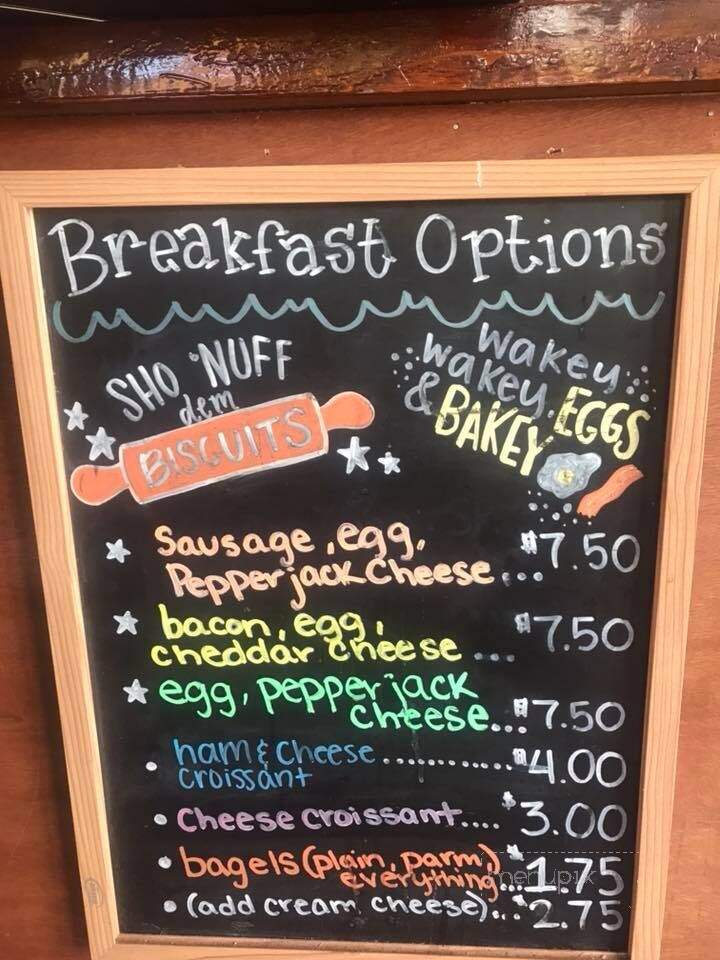 Breakfast Options
SHO 'NUFF
dem
BISCUITS
wakey
wakey,
& EGGS
BAKEY
Sausage, egg,
Pepperjack Cheese... $7.50
bacon, egg,
cheddar cheese ... $7.50
egg, pepperjack
cheese... $7.50
ham & cheese
croissant ............ $4.00
Cheese croissant.... $3.00
bagels (plain, parm,)
everything... $1.75
(add cream cheese)... $2.75
menupix